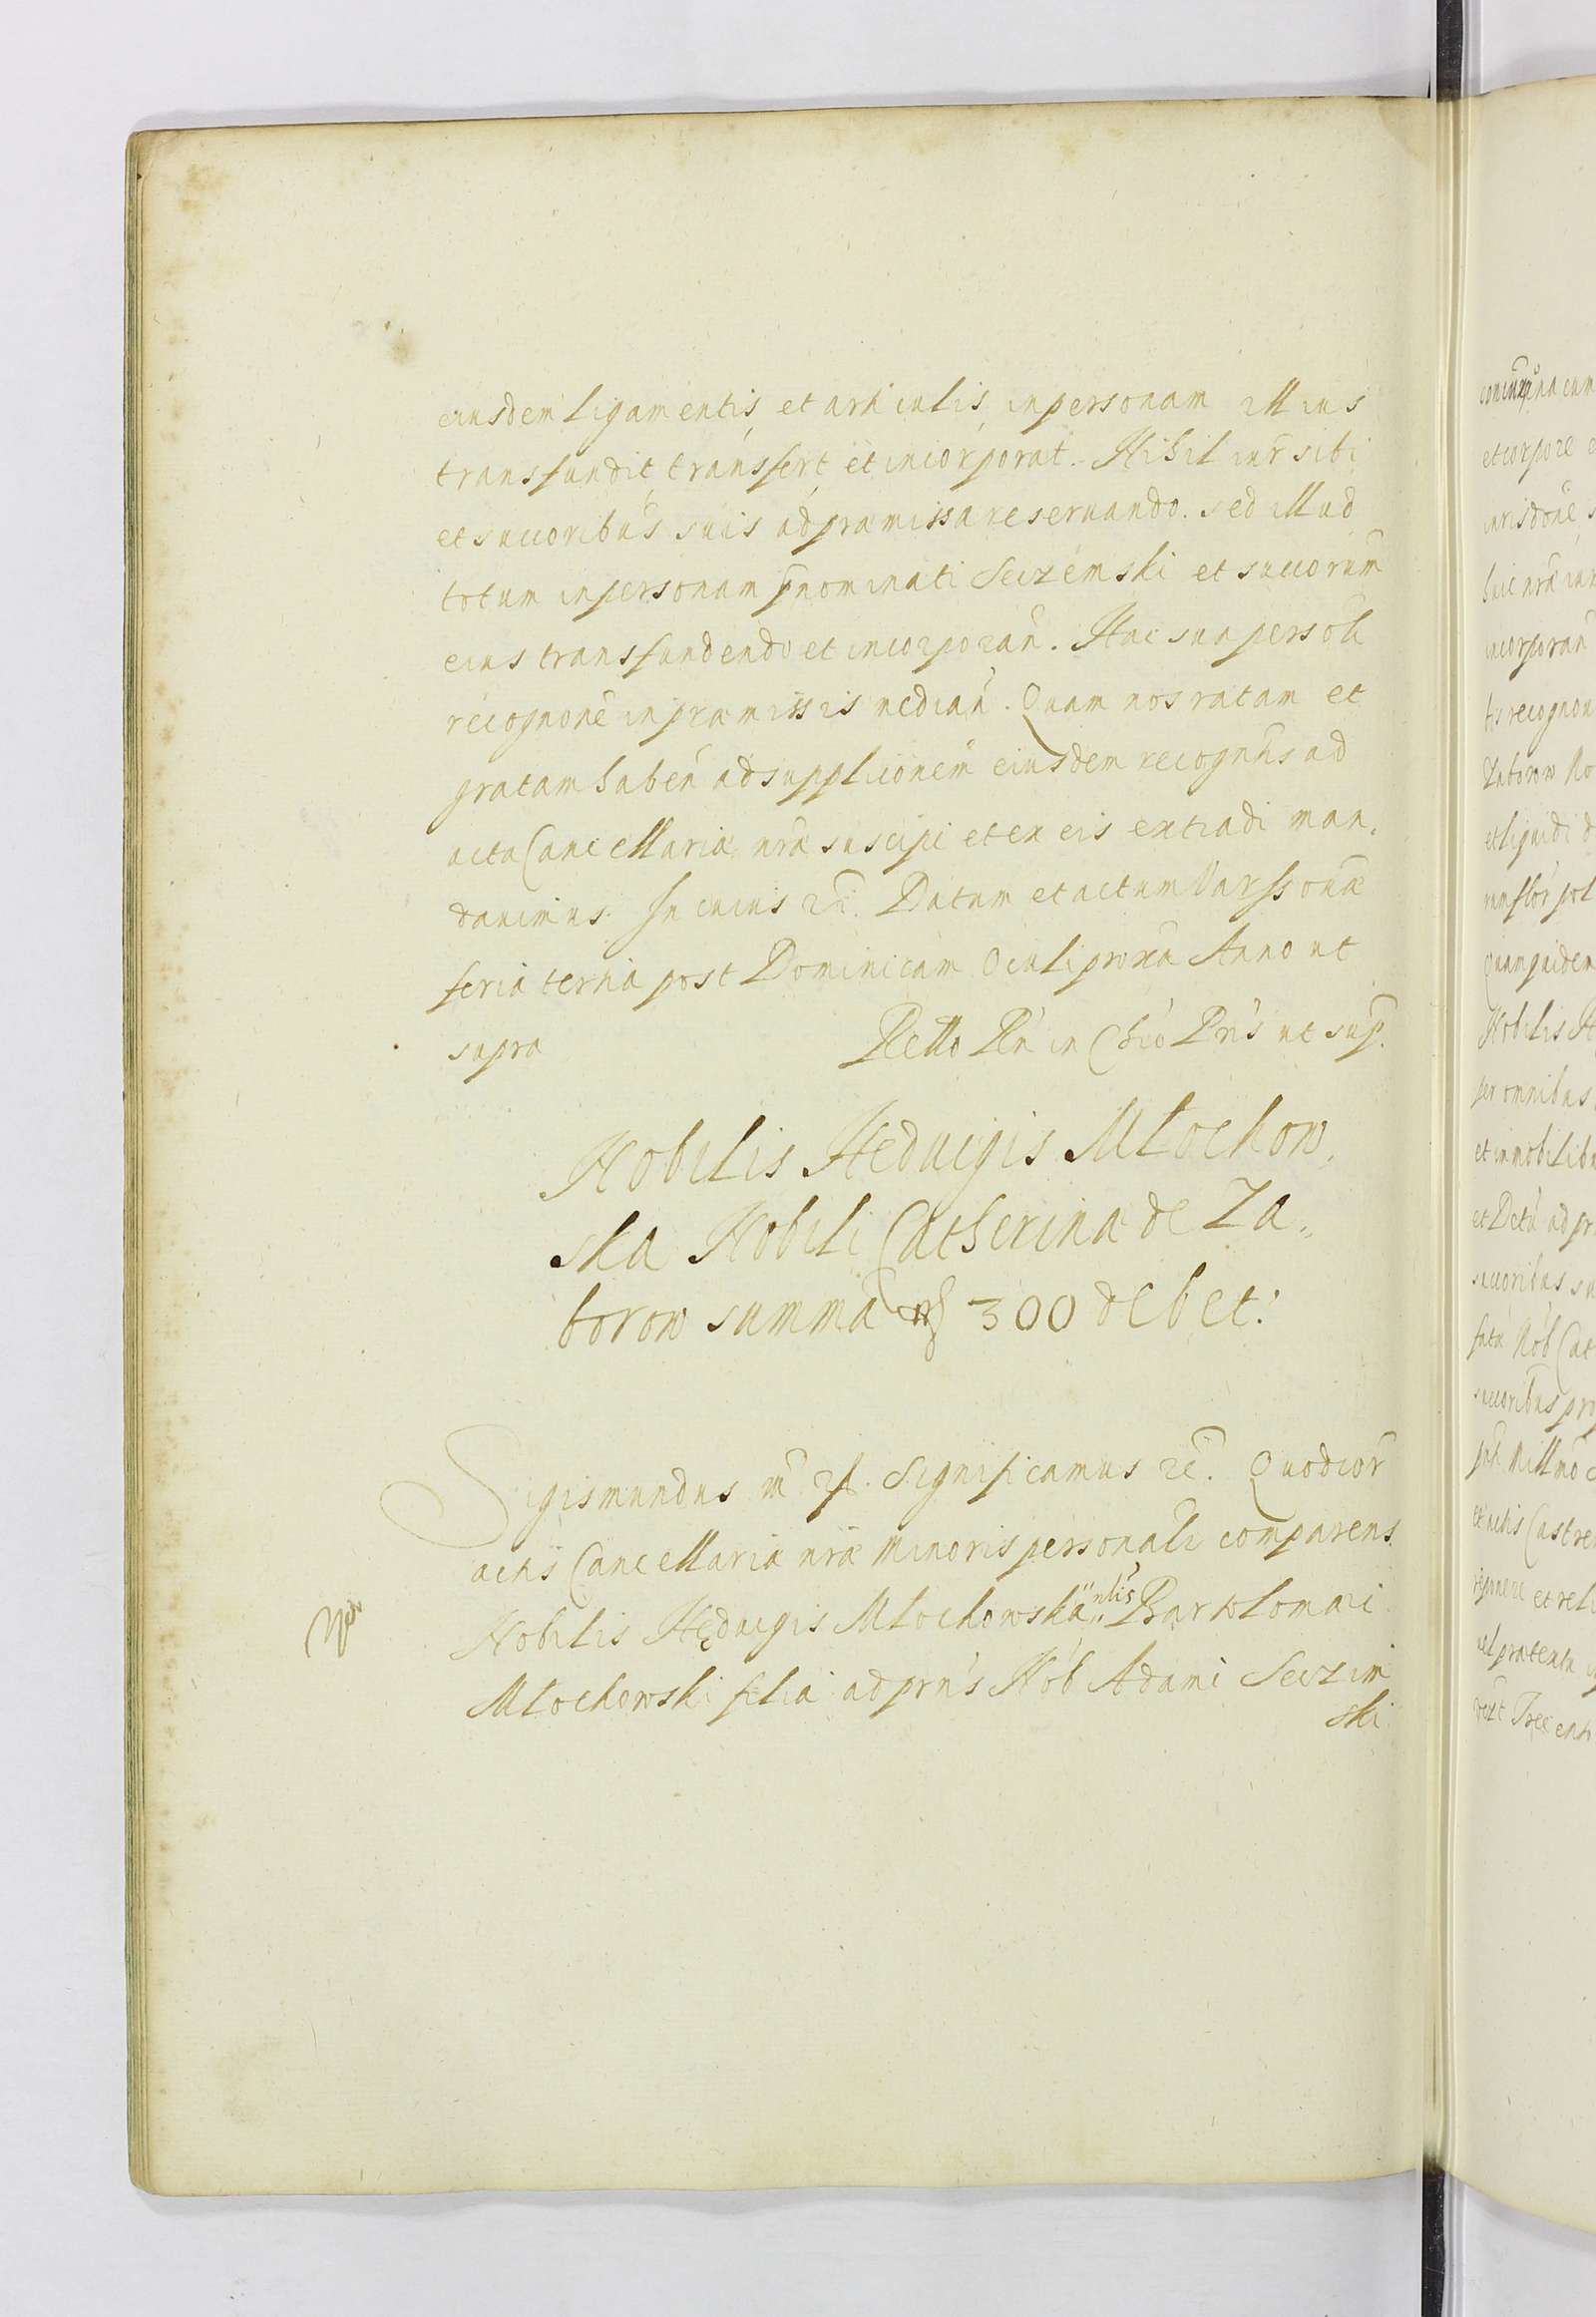 eiusdem ligamentis, et articulis, in personam illius
transfundit, transfert, et incorporat. Nihil iur̃ sibi
et succoribus suis ad præmissa reseruando. sed illud
totum in personam p̃nominati Seczemski et succorum̃
eius transfundendo et incorporañ. Hac sua persoli
recognone in præmissis mediañ. Quam nos ratam et
gratam habeñ ad supplicionem eiusdem recogntis ad
acta Cancellariæ nr̃æ suscipi et ex eis extradi man„
dauimus. In cuius rei. Datum et actum Varssouiæ
feria tertia post Dominicam Oculi proxã Anno ut
supra
Rello Rñ in Chro Pris ut sup.
Nobilis Heduigis Mlochow„
ska Nobili Catherinæ de Za„
borow summã fl 300 debet:
Sigismundus m̃ rf. Significamus rc̃. Quod cor̃
actis Cancellariæ nr̃æ Minoris personali comparens
Nobilis Heduigis Mlochowska „ nlis Bartolomæi
Mlochowski filia ad pñs Nob Adami Seczim
ski
concumina cum
et corpore
iurisdone s
huic nræ iur
incorporañ
tis recognon
Zaborow No
et liquidi d
rum flor pol
Quam quidem
Nobilis H
per omnibus
et immobilib
et Detã ad pr
succoribus su
fatã Nob Cat
succoribus pro
et actis Castre
reponere et reli
uel prætextu